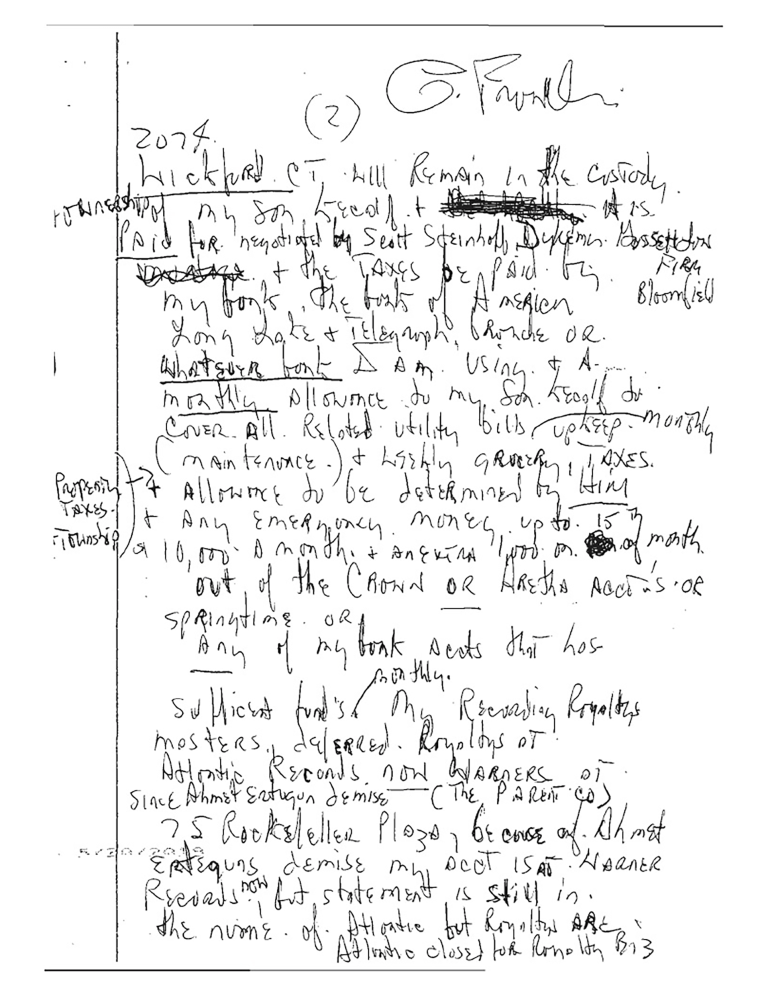 (2) G. Franklin
2074.
Wickford CT. will Remain in the custody
ownership of my Son Kecalf +
it is
PAID for negotiated by Scott Steinhoff, Dykema Gossett Law
Firm
Bloomfield
+ the TAXES be PAID by
my bank, the bank of America
Long Lake + Telegraph, Branch OR.
Whatever bank I Am. Using + A
monthly Allowance to my Son. Kecalf to
COVER All Related utility bills, upkeep. monthly
(maintenance.) + weekly grocery, TAXES.
Property
TAXES.
Township
+ Allowance to be determined by HIM
+ Any Emergency money up to. 15
10,000. A month. + An extra 1,000 on of month.
out of the CROWN OR Aretha Acct's. OR
Springtime OR
Any of my bank Accts that has
monthly.
Sufficient fund's. My Recording Royaltys
masters, deferred. Royaltys at
Atlantic Records. now WARNERS at
Since Ahmet Ertugun demise (The PARENT CO)
75 Rockefeller Plaza, because of. Ahmet
5/20/2019
Erteguns demise my Acct IS AT. WARNER
Records now, but statement is still in.
the name. of. Atlantic but Royaltys ARE.
Atlantic closed for Royalty Biz